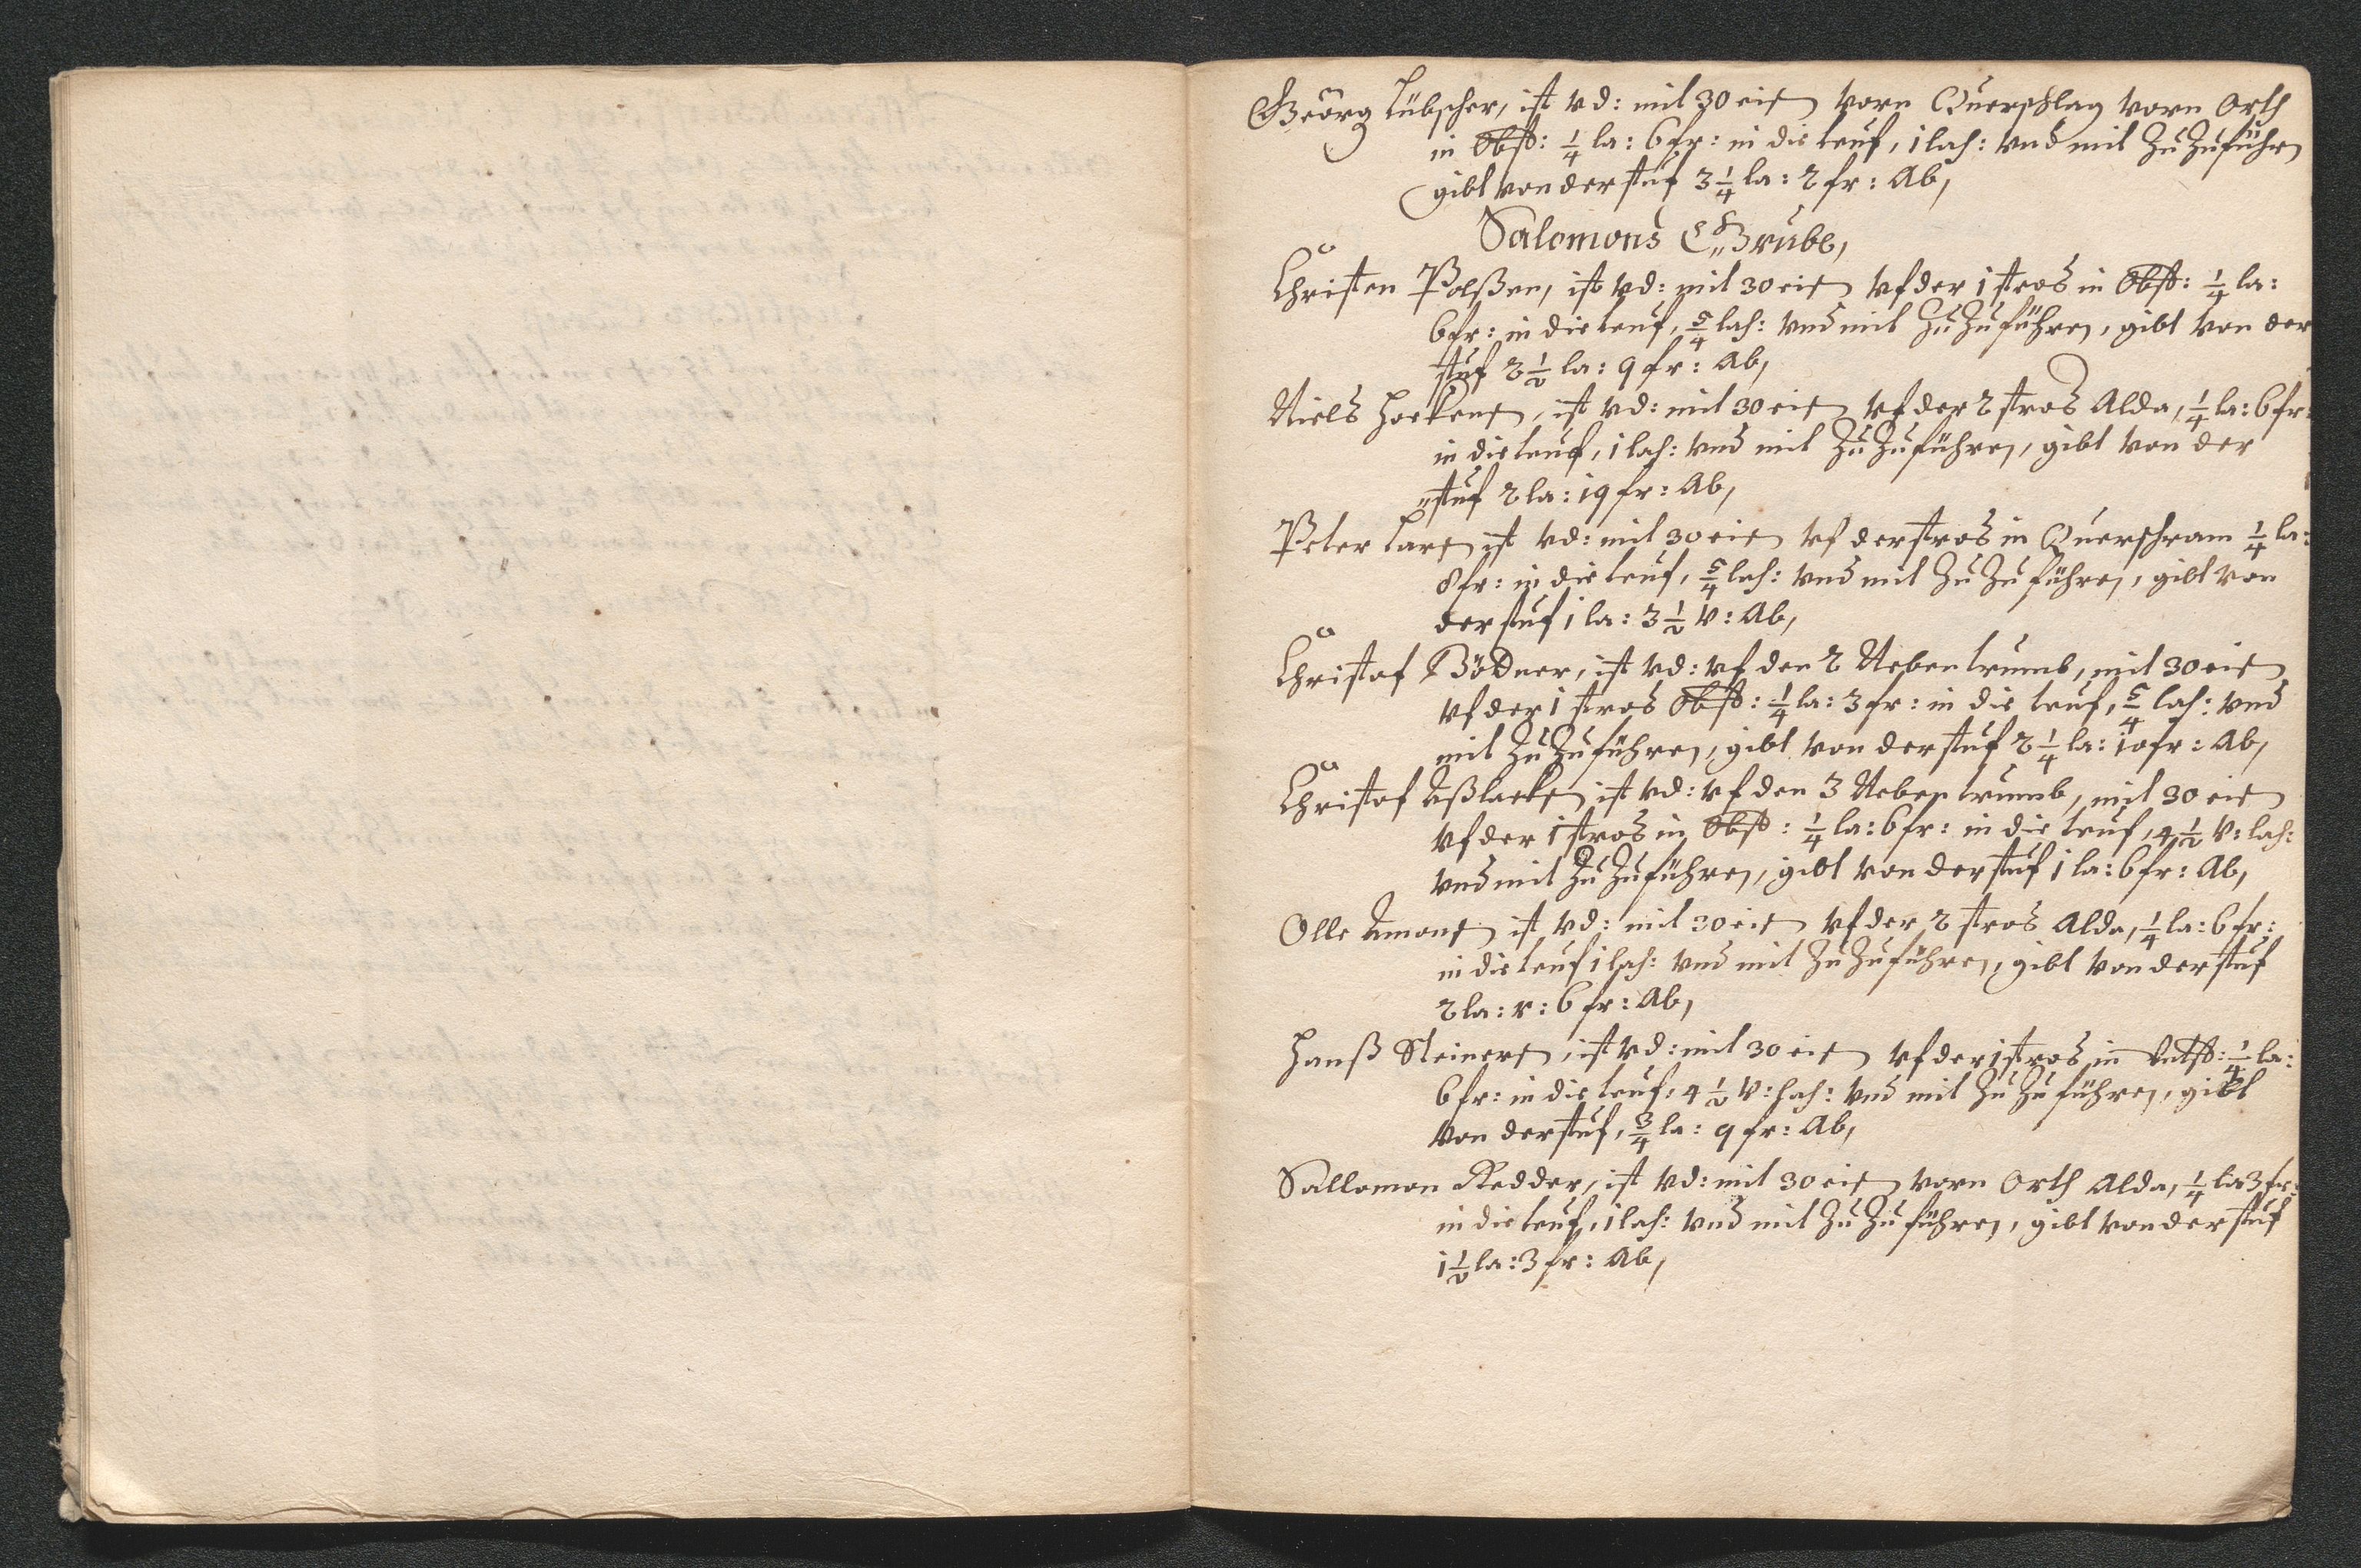 Geörg Lübscher, ist vd: mit 30 eis vorn Querschlag vorn Orth
in Obst: 1/4 la: 6 fr: in die teuf, 1 lach: vnd mit ZuZuführen
gibt von der stuf 3 1/4 la: 2 fr: Ab,
Salomons Grube,
Christen Polßen, ist vd: mit 30 eis vf der 1 stros in Obst: 1/4 la:
6 fr: in die teuf, 5/4 lach: vnd mit ZuZuführen, gibt von der
stuf 2 1/2 la: 9 fr: Ab,
Niels Hockens, ist vd: mit 30 eis vf der 2 stros Alda, 1/4 la: 6 fr:
in die teuf, 1 lach: vnd mit ZuZuführen, gibt von der
stuf 2 la: 19 fr: Ab,
Peter Lars ist vd: mit 30 eis vf der stros in Querschram 1/4 la:
8 fr: in die teuf, 5/4 lach: vnd mit ZuZuführen, gibt von
der stuf 1 la: 3 1/2 v: Ab,
Christof Bödner, ist vd: vf den 2 Nebentrumb, mit 30 eis
vf der 1 stros Obst: 1/4 la: 3 fr: in die teuf, 5/4 lach: vnd
mit ZuZuführen, gibt von der stuf 2 1/4 la: 10 fr: Ab,
Christof Aßlacks ist vd: vf den 3 Nebentrumb, mit 30 eis
vf der 1 stros in Obst: 1/4 la: 6 fr: in die teuf, 4 1/2 v: lach:
vnd mit ZuZuführen, gibt von der stuf 1 la: 6 fr: Ab,
Olle Amons ist vd: mit 30 eis vf der 2 stros Alda, 1/4 la: 6 fr:
in die teuf 1 lach: vnd mit ZuZuführen, gibt von der stuf
2 la: v: 6 fr: Ab,
Hanß Steiners, ist vd: mit 30 eis vf der 1 stros in Untst: 1/4 la:
6 fr: in die teuf, 4 1/2 v: lach: vnd mit ZuZuführen, gibt
von der stuf, 3/4 la: 9 fr: Ab,
Sallomon Redder, ist vd: mit 30 eis vorn Orth Alda, 1/4 la 3 fr:
in die teuf, 1 lach: vnd mit ZuZuführen, gibt von der stuf
1 1/2 la: 3 fr: Ab,